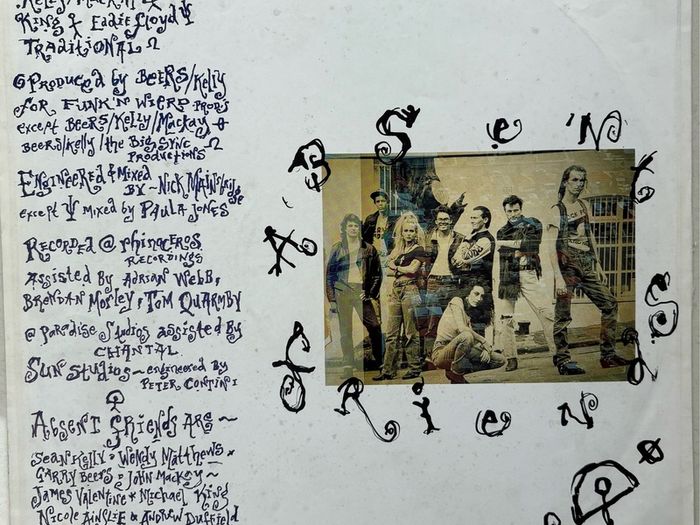 Kelly/Mackay
King & Eddie Floyd Ψ
TRADITIONAL Ω
PRODUCED by BEERS/Kelly
for FUNK'N WIERD PROD'S
except BEERS/Kelly/Mackay
BEERS/Kelly/the Big Sync Ω
PRODUCTIONS
Engineered & Mixed
BY ~ NICK MAINSBRIDGE
except Ψ mixed by PAULA JONES
RECORDED @ rhinoceros
RECORDINGS
Assisted by Adrian Webb,
BRENDAN Morley, TOM QUARMBY
@ Paradise Studios assisted By
CHANTAL
SUN STUDIOS ~ engineered By
PETER CONTINI
ABSENT FRIENDS ARE ~
SEAN Kelly * Wendy Matthews *
GARRY Beers * JOHN Mackay ~
JAMES VALENTINE * Michael King
Nicole AINSLIE & ANDREW Duffield
ABSeNT
FRieNDS